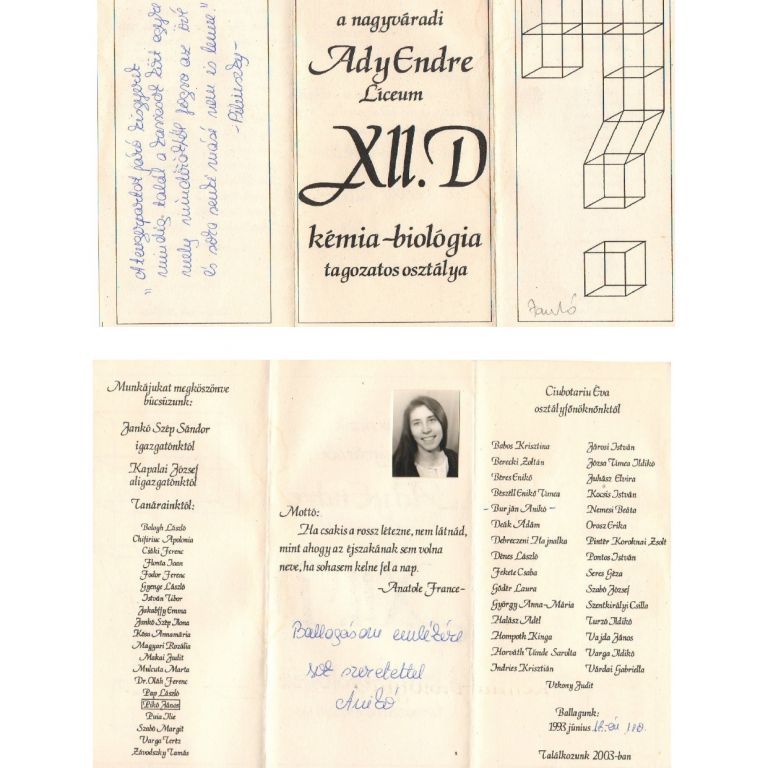 "A tengerpartot járó kisgyerek
mindig talál a kavicsok közt egyre
mely mindöröktől fogva az övé
és soha senki másé nem is lenne."
-Pilinszky-
a nagyváradi
Ady Endre
Líceum
XII. D
kémia-biológia
tagozatos osztálya
Jankó
Munkájukat megköszönve
búcsúzunk:
Jankó Szép Sándor
igazgatónktól
Kapalai József
aligazgatónktól
Tanárainktól:
Balogh László
Chifiriuc Apolonia
Csáki Ferenc
Flonta Ioan
Fodor Ferenc
Gyenge László
István Tibor
Jakabffy Emma
Jankó Szép Ilona
Kósa Annamária
Magyari Rozália
Makai Judit
Mulcuta Marta
Dr. Oláh Ferenc
Pap László
Pikó János
Puia Ilie
Szabó Margit
Varga Tertz
Závodszky Tamás
Mottó:
Ha csakis a rossz létezne, nem látnád,
mint ahogy az éjszakának sem volna
neve, ha sohasem kelne fel a nap.
-Anatole France-
Ballagásom emlékére
sok szeretettel
Anikó
Ciubotariu Éva
osztályfőnöknőnktől
Babos Krisztina
Berecki Zoltán
Béres Enikő
Beszéll Enikő Tímea
- Burján Anikó -
Deák Ádám
Debreczeni Hajnalka
Dénes László
Fekete Csaba
Gödér Laura
György Anna-Mária
Halász Adél
Hompoth Kinga
Horváth Tünde Sarolta
Indries Krisztián
Járosi István
Józsa Tímea Ildikó
Juhász Elvira
Kocsis István
Nemesi Beáta
Orosz Erika
Pintér Koroknai Zsolt
Pontos István
Seres Géza
Szabó József
Szentkirályi Csilla
Turzó Ildikó
Vajda János
Varga Ildikó
Várdai Gabriella
Vékony Judit
Ballagunk:
1993 június
Találkozunk 2003-ban